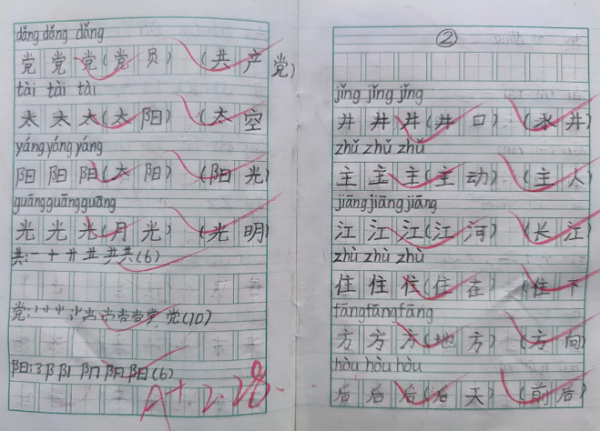 dǎng dǎng dǎng
党 党 党 (党 员) (共 产 党)
tài tài tài
太 太 太 (太 阳) (太 空)
yáng yáng yáng
阳 阳 阳 (太 阳) (阳 光)
guāng guāng guāng
光 光 光 (月 光) (光 明)
共: 一 十 卄 共 (6)
党: 党 (10)
阳: 3 阝 阳 (6)
A+ 2.28.
②
jǐng jǐng jǐng
井 井 井 (井 口) (水 井)
zhǔ zhǔ zhǔ
主 主 主 (主 动) (主 人)
jiāng jiāng jiāng
江 江 江 (江 河) (长 江)
zhù zhù zhù
住 住 住 (住 在) (住 下)
fāng fāng fāng
方 方 方 (地 方) (方 向)
hòu hòu hòu
后 后 后 (后 天) (前 后)